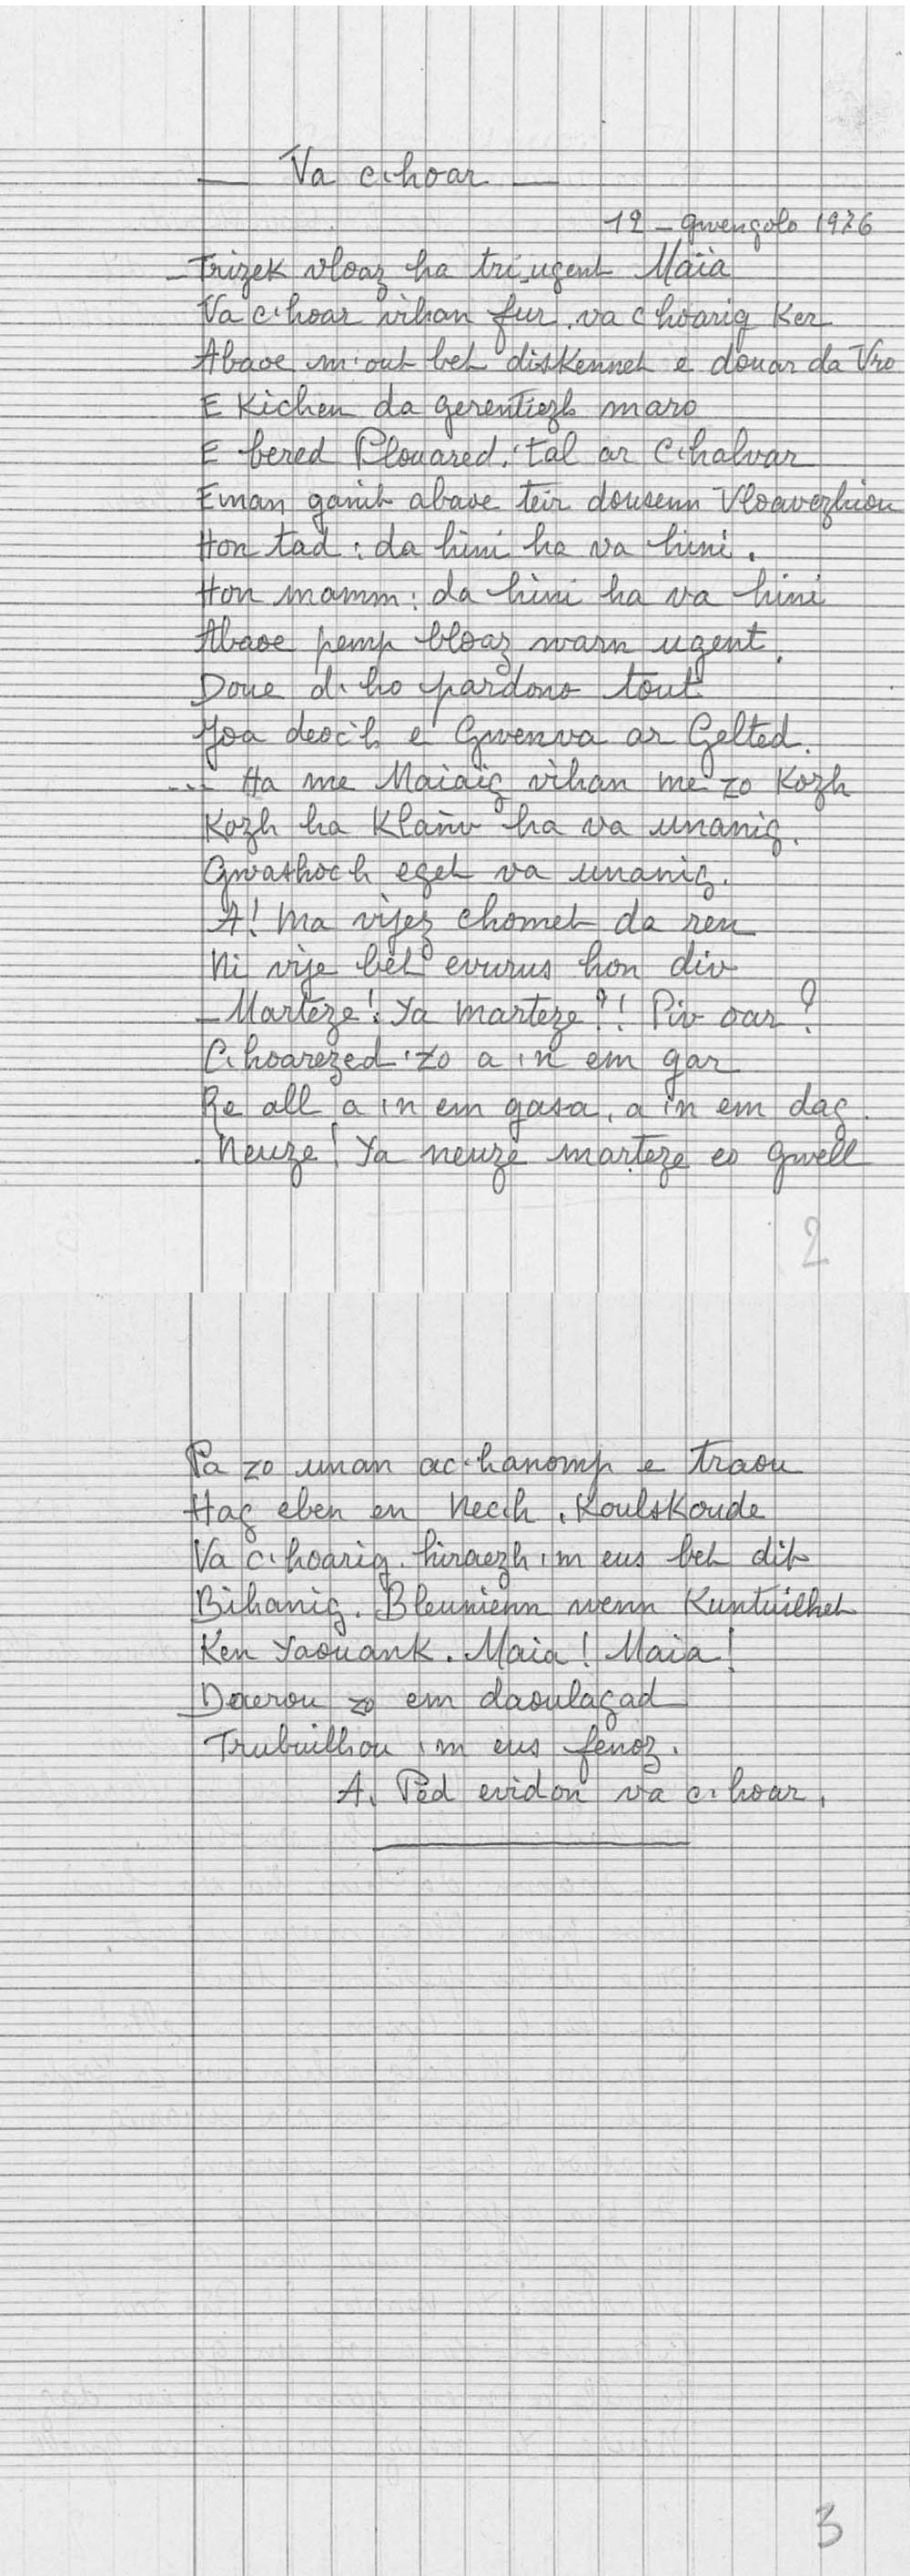 — Va c'hoar —
12 - gwengolo 1976
- Trizek vloaz ha tri-ugent Maïa
Va c'hoar vihan fur, va c'hoarig Ker
Abaoe m'out bet disKennet e douar da Vro
E Kichen da gerentiezh maro
E bered Plouared, 'tal ar C'halvar
Eman ganit abaoe teir dousenn Vloavezhiou
Hon tad : da hini ha va hini.
Hon mamm : da hini ha va hini
Abaoe pemp bloaz warn ugent.
Doue d'ho pardono tout
Joa deoc'h e Gwenva ar Gelted.
... Ha me Maiaig vihan me zo Kozh
Kozh ha Klañv ha va unanig.
Gwashoc'h eget va unanig.
A! Ma vijez chomet da ren
Ni vije bet evurus hon div
- Marteze! Ya marteze?! Piv oar?
C'hoarezed 'zo a 'n em gar
Re all a 'n em gasa, a 'n em dag.
. Neuze! Ya neuze marteze eo gwell
2
Pa zo unan ac'hanomp e traou
Hag eben en Nec'h. Koulskoude
Va c'hoarig, hiraezh 'm eus bet dit
Bihanig. Bleunienn wenn Kuntuilhet
Ken Yaouank. Maia! Maia!
Daerou zo em daoulagad
Trubuilhou 'm eus fenoz.
A. Ped evidon va c'hoar.
3